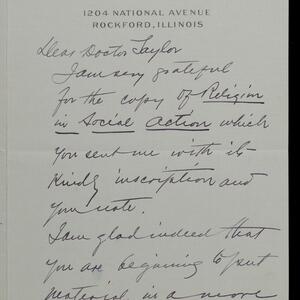 1204 NATIONAL AVENUE
ROCKFORD, ILLINOIS
Dear Doctor Taylor
I am very grateful
for the copy of Religion
in Social Action which
you sent me with its
kindly inscription and
your note.
I am glad indeed that
you are beginning to put
material in a more